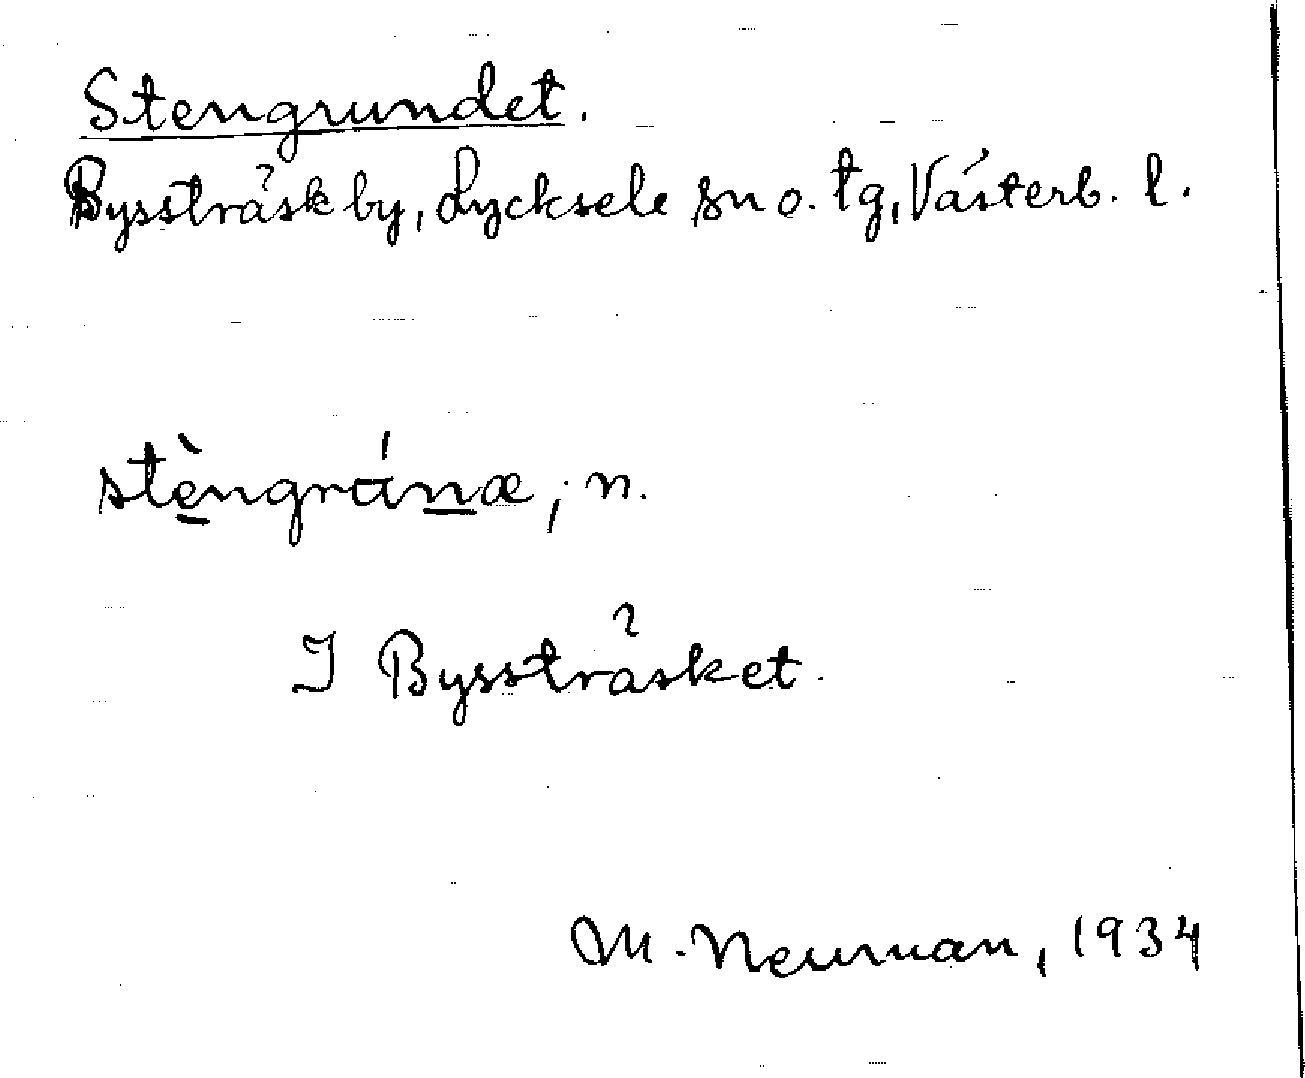 Stengrundet.
Byssträsk by, Lycksele sn o. tg, Västerb. l.
stèngrúnæ, n.
I Byssträsket.
M. Neuman, 1934